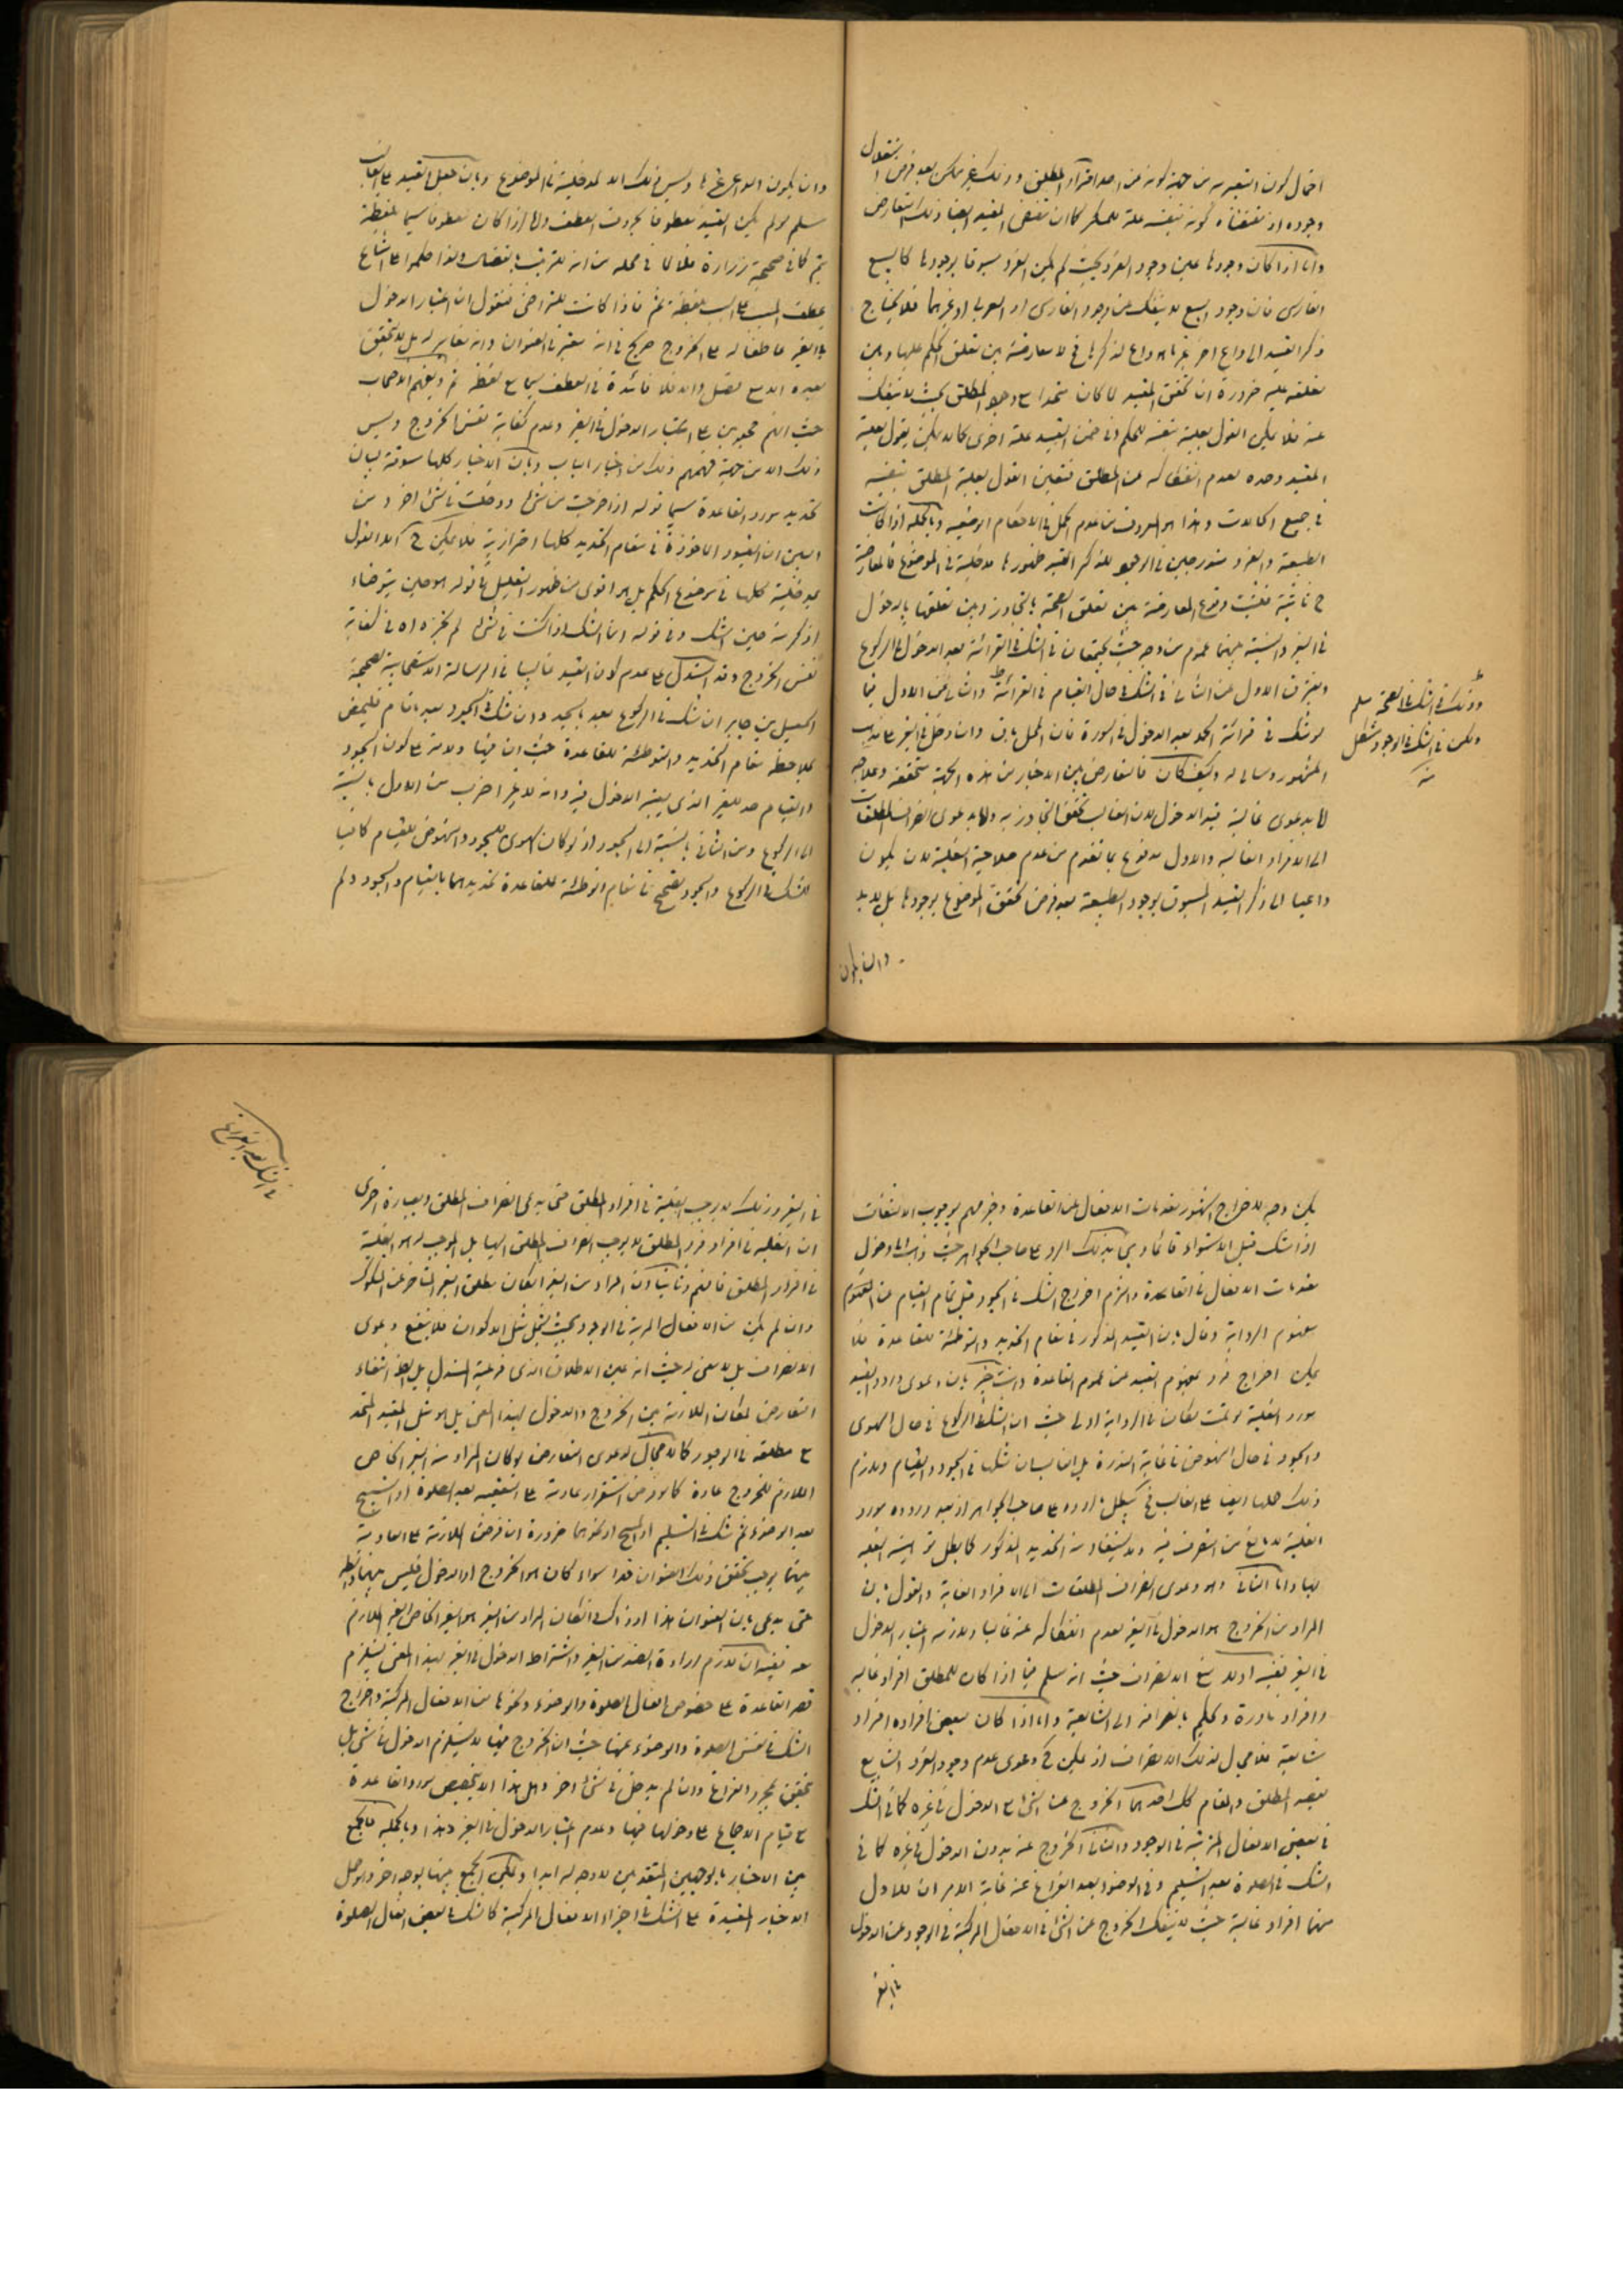 احتمال كون التعبير به من جهة كونه من احد افراد المطلق وذلك غير ممكن بعد فرض استقلال
وجوده اذ مقتضاه كونه بنفسه علة للحكم كما ان مقتضى المقيد ايضا ذلك التعارض
واما اذا كان وجودها عين وجود الفرد بحيث لم يكن الفرد مسبوقا بوجودها كالبيع
الفارسى فان وجود البيع لا ينفك عن وجود الفارسى او العربى او غيرهما فلا يحتاج
ذكر القيد الى داع اخر غير ما هو داع لذكرها فح لا معارضة بين تعلق الحكم عليها وبين
تعلقه عليه ضرورة ان تحقق المقيد لما كان متحدا مع وجود المطلق بحيث لا ينفك
عنه فلا يمكن القول بعلية بنفسه للحكم وفى ضمن القيد علة اخرى كما لا يمكن يقول بعلية
المقيد وحده لعدم انفكاكه عن المطلق فتعين القول بعلية المطلق بنفسه
فى جميع الحالات وهذا هو المعروف من عدم الحمل فى الاحكام الوضعيه وبالجملة اذا كانت
الطبيعة والفرد متدرجين فى الوجود للذكر القيد ظهورها مدخلية فى الموضوع فالمعارضة
ح ثابتة فثبت وقوع المعارضة بين تعلق الصحة بالتجاوز وبين تعلقها بالدخول
فى الغير والنسبة بينهما عموم من وجه حيث يجتمعان فى الشك فى القرائة بعد الدخول فى الركوع
ويفترق الاول عن الثانى فى الشك فى حال القيام فى القرائة والثانى عن الاول فيما
لو شك فى قرائة الحمد بعد الدخول فى السورة فان المحل باق وان دخل فى الغير على مذهب
المشهور وكيف كان فالتعارض بين الاخبار من هذه الجهة متحققة وعلاجه
اما بدعوى غالبية قيد الدخول لان الغالب تحقق التجاوز به واما بدعوى انصراف المطلقات
الى الافراد الغالبه والاول مدفوع بما تقدم من عدم صلاحية الغلبة لان يكون
داعيا الى ذكر القيد المسبوق بوجود الطبيعة بعد فرض تحقق الموضوع بوجودها بل لا بد
وان يكون
وذلك فى الشك فى الصحة مسلم
ولكن فى الشك فى الوجود مشكل
منه
وان يكون الداعى غيرها وليس ذلك الا لمدخلية فى الموضوع وبان حمل القيد على الغالب
مسلم لو لم يكن القيد معطوفا بحروف العطف واما اذا كان معطوفا سيما بلفظة
ثم كما فى صحيحة زرارة فلا لما فى محله من انه للترتيب بانفصال ولذا حكموا على امتناع
عطف المسبب على السبب بلفظة ثم فاذا كانت للتراخى فنقول ان اعتبار الدخول
بالغير عاطفا له على الخروج صريح فى انه معتبر فى العنوان وانه مغاير له بل لا يتحقق
بعده الا مع فصل والا فلا فائدة فى العطف سيما مع لفظة ثم وبفهم الاصحاب
حيث انهم مجبورين على اعتبار الدخول فى الغير وعدم كفاية نفس الخروج وليس
ذلك الا من جهة فهمهم ذلك من اخبار الباب وبان الاخبار كلها مسوقة لبيان
تحديد مورد القاعدة سيما قوله اذا خرجت من شئ ودخلت فى شئ اخر ومن
البين ان القيود الماخوذة فى مقام التحديد كلها احترازية فلا يمكن ح الا القول
بمدخلية كلها فى موضوع الحكم بل هو اقوى من ظهور التعليل فى قوله هو حين يتوضاء
اذكر منه حين الشك وفى قوله وانما الشك اذا كنت فى شئ لم تجزه اه فى كفاية
نفس الخروج وقد استدل على عدم كون القيد غالبيا فى الرسالة الاستصحابية بصحيحة
اسمعيل بن جابر ان شك فى الركوع بعد ما سجد وان شك فى السجود بعد ما قام فليمض
بملاحظة مقام التحديد والتوطئة للقاعدة حيث ان فيها دلالة على كون السجود
والقيام حد للغير الذى يعتبر الدخول فيه وانه لا غير اقرب من الاول بالنسبة
الى الركوع ومن الثانى بالنسبة الى السجود اذ لو كان الهوى للسجود والنهوض للقيام كافيا
للشك فى الركوع والسجود لقبح فى مقام التوطئة للقاعدة تحديدهما بالقيام والسجود ولم
يكن وجه لاخراج المشهور مقدمات الافعال عن القاعدة وجزمهم بوجوب الالتفات
اذا شك قبل الاستواء قائما ويمكن بذلك الرد على صاحب الجواهر حيث ذهب الى دخول
مقدمات الافعال فى القاعدة والتزم اخراج الشك فى السجود قبل تمام القيام عن العموم
بمفهوم الرواية وقال بان القيد المذكور فى مقام التحديد والتوطئة للقاعدة فلا
يمكن اخراج فرد بمفهوم القيد عن عموم القاعدة وانت خبير بان دعوى ورود القيد
مورد الغلبة لو تمت لكان فى الرواية اولى حيث ان الشك فى الركوع فى حال الهوى
والسجود فى حال النهوض فى غاية الندرة بل الغالب ان شكها فى السجود والقيام ولازم
ذلك حملها ايضا على الغالب فح يبطل ما اورده على صاحب الجواهر اذ بعد وروده مورد
الغلبة لا مانع من التصرف فيه ولا يستفاد منه التحديد المذكور كما يبطل قرينية الغلبة
لها واما الثانى وهو دعوى انصراف المطلقات الى الافراد الغالبة والقول بان
المراد من الخروج هو الدخول فى الغير لعدم انفكاكه عنه غالبا ولازمه اعتبار الدخول
فى الغير ففيه اولا منع الانصراف حيث انه مسلم فيما اذا كان للمطلق افراد غالبه
وافراد نادرة وتحكيم بانصرافه الى الشايعة واما اذا كان بعض افراده افراد
شايعة فلا مجال لذلك الانصراف اذ يمكن ح دعوى عدم وجود الفرد الشايع
بعد المطلق والمقام كك احدهما الخروج عن الشئ مع الدخول فى غيره كما فى الشك
فى بعض الافعال المترتبة فى الوجود والثانى الخروج عنه بدون الدخول فى غيره كما فى
الشك فى الصلوة بعد التسليم وفى الوضوء بعد الفراغ عنه غاية الامر ان للاول
منهما افراد غالبة حيث لا ينفك الخروج عن الشئ فى الافعال المركبة فى الوجود عن الدخول
فى الغير
فى الغير وذلك لا يوجب الغلبة فى افراد المطلق حتى يدعى انصراف المطلق وبعبارة اخرى
ان الغلبة فى افراد فرد المطلق لا يوجب انصراف المطلق اليها بل الموجب له هو الغلبة
فى افراد المطلق فافهم وثانيا ان المراد من الغير ان كان مطلق الغير المتاخر عن المشكوك
وان لم يكن من الافعال المرتبة فى الوجود بحيث يشمل مثل الاكوان فلا ينفع دعوى
الانصراف بل لا معنى له حيث انه عين الاطلاق الذى فرعية المستدل بل الظ انتفاء
التعارض لمكان الملازمة بين الخروج والدخول بهذا المعنى بل هو مثل المقيد المتحد
مع مطلقه فى الوجود كما لا مجال لدعوى التعارض لو كان المراد منه الغير الخاص
اللازم للخروج عادة كما لو فرض استقرار عادته على التعقيب بعد الصلوة او التسبيح
بعد الوضوء ثم شك فى التسليم او المسح او نحوهما ضرورة ان فرض الملازمة على العادية
بينهما يوجب تحقق ذلك العنوان قدا سواء كان هو الخروج او الدخول فليس بينهما واسطة
حتى يدعى بان العنوان هذا او ذاك وان كان المراد من الغير هو الغير الخاص الغير اللازم
معه ففيه ان لازم ارادة القيد من الغير واشتراط الدخول فى الغير بهذا المعنى يستلزم
قصر القاعدة على خصوص افعال الصلوة والوضوء ونحوها من الافعال المركبة واخراج
الشك فى نفس الصلوة والوضوء عنها حيث ان الخروج فيها لا يستلزم الدخول فى شئ بل
يتحقق بمجرد الفراغ وان لم يدخل فى شئ اخر وهل هذا الا تخصيص مورد القاعدة
مع قيام الاجماع على دخولها فيها وعدم اعتبار الدخول فى الغير هذا وبالجملة فالجمع
بين الاخبار بالوجهين المتقدمين لا وجه له ابدا ويمكن الجمع بينها بوجه اخر وهو حمل
الاخبار المقيدة على الشك فى اجزاء الافعال المركبة كالشك فى بعض افعال الصلوة
فى الشك بعد الفراغ